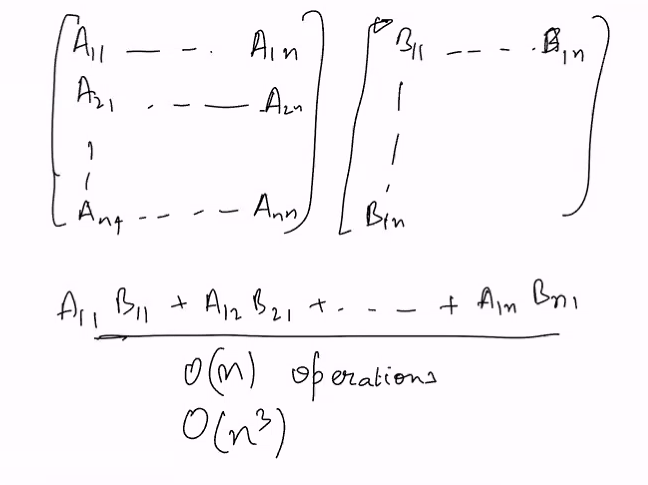 A₁₁ — - . A₁n B₁₁ -- - . B₁n
A₂₁ . - — A₂n
Aₙ₁ -- - - Aₙₙ B₁n
A₁₁ B₁₁ + A₁₂ B₂₁ + . - - + A₁n Bn₁
O(n) operations
O(n³)